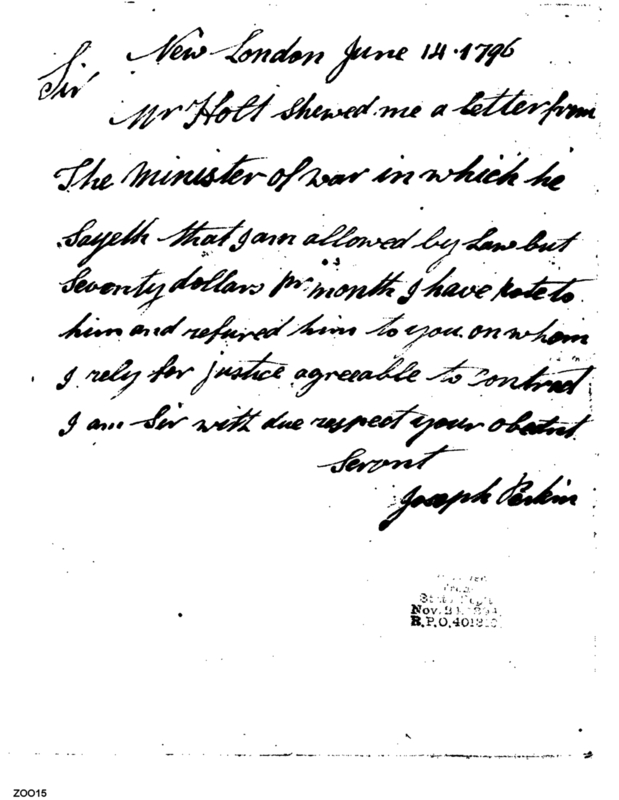 New London June 14. 1796
Sir
Mr Holt Shewed me a letter from
The Minister of war in which he
Sayeth that I am allowed by Law but
Seventy dollars pr month I have rote to
him and refured him to you on whom
I rely for justice agreeable to Contract
I am Sir with due respect your obednt
Servnt
Joseph Perkin
From
State Dep't
Nov. 21,
R.P.O.
ZOO15